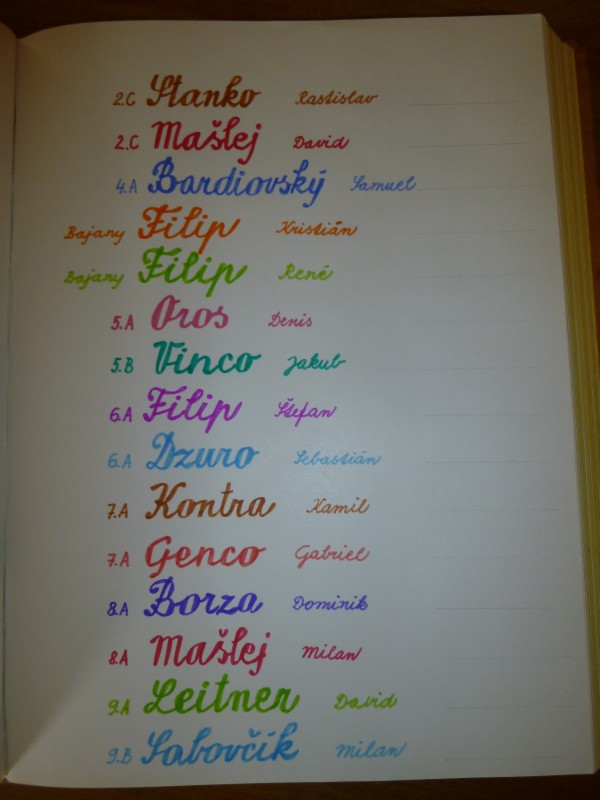 2.C Stanko Rastislav
2.C Mašlej David
4.A Bardiovský Samuel
Bajany Filip Kristián
Bajany Filip René
5.A Oros Denis
5.B Vinco Jakub
6.A Filip Štefan
6.A Dzuro Sebastián
7.A Kontra Kamil
7.A Genco Gabriel
8.A Borza Dominik
8.A Mašlej Milan
9.A Leitner David
9.B Sabovčík Milan